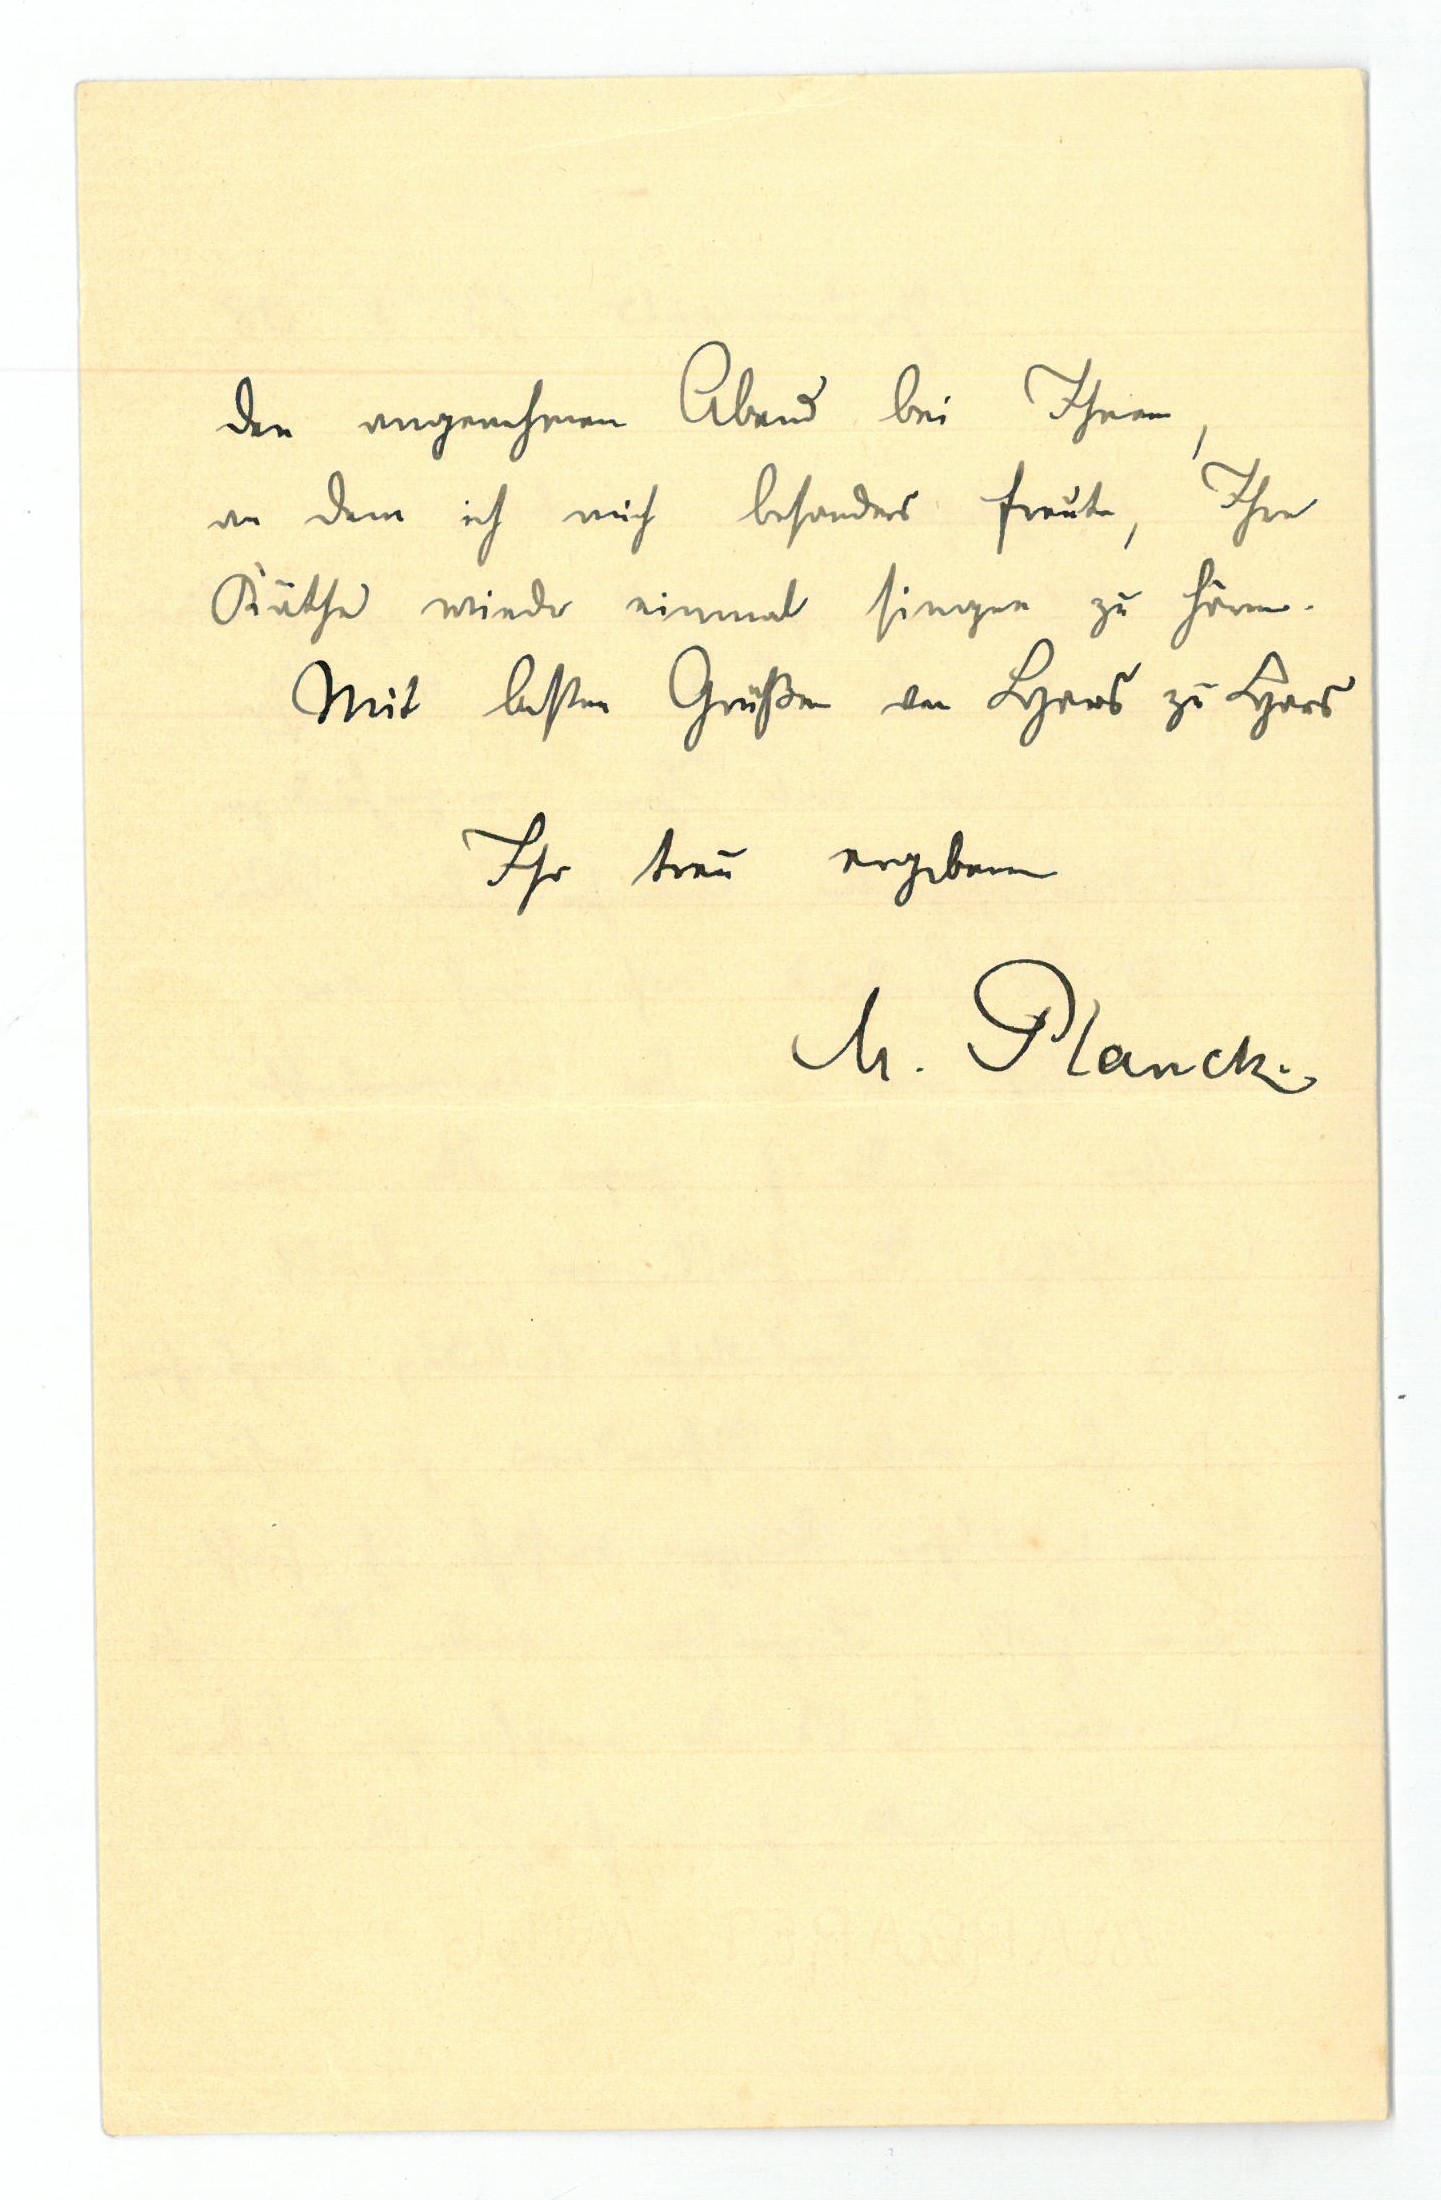 den angenehmen Abend bei Ihnen,
an dem ich mich besonders freute, Ihre
Käthe wieder einmal singen zu hören.
Mit besten Grüßen von Haus zu Haus
Ihr treu ergebener
M. Planck.